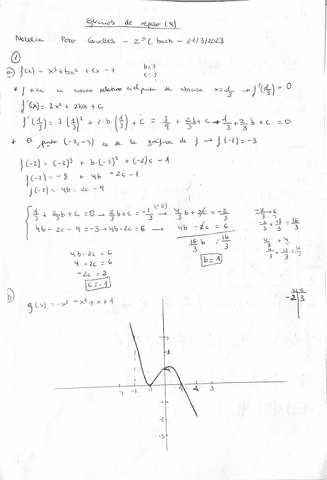 Ejercicios de repaso (9)
Natalia Pozo - 2º C bach - 21/3/2023
①
a) f(x) = x³ + bx² + cx - 1 b=? c=?
* f tiene un extremo relativo en el punto de abscisa x = 1/3 → f'(1/3) = 0
f'(x) = 3x² + 2bx + c
f'(1/3) = 3·(1/3)² + 2·b·(1/3) + c = 3/9 + 2/3 b + c → 1/3 + 2/3 b + c = 0
* El punto (-2, -3) es de la gráfica de f → f(-2) = -3
f(-2) = (-2)³ + b·(-2)² + (-2)c - 1
f(-2) = -8 + 4b - 2c - 1
f(-2) = 4b - 2c - 9
1/3 + 2/3 b + c = 0 → 2/3 b + c = -1/3 (·2) → 4/3 b + 2c = -2/3
4b - 2c - 9 = -3 → 4b - 2c = 6 → 4b - 2c = 6
16/3 b = 16/3
b = 1
4b - 2c = 6
4 - 2c = 6
-2c = 2
c = -1
b) g(x) = -x³ - x² + x + 1